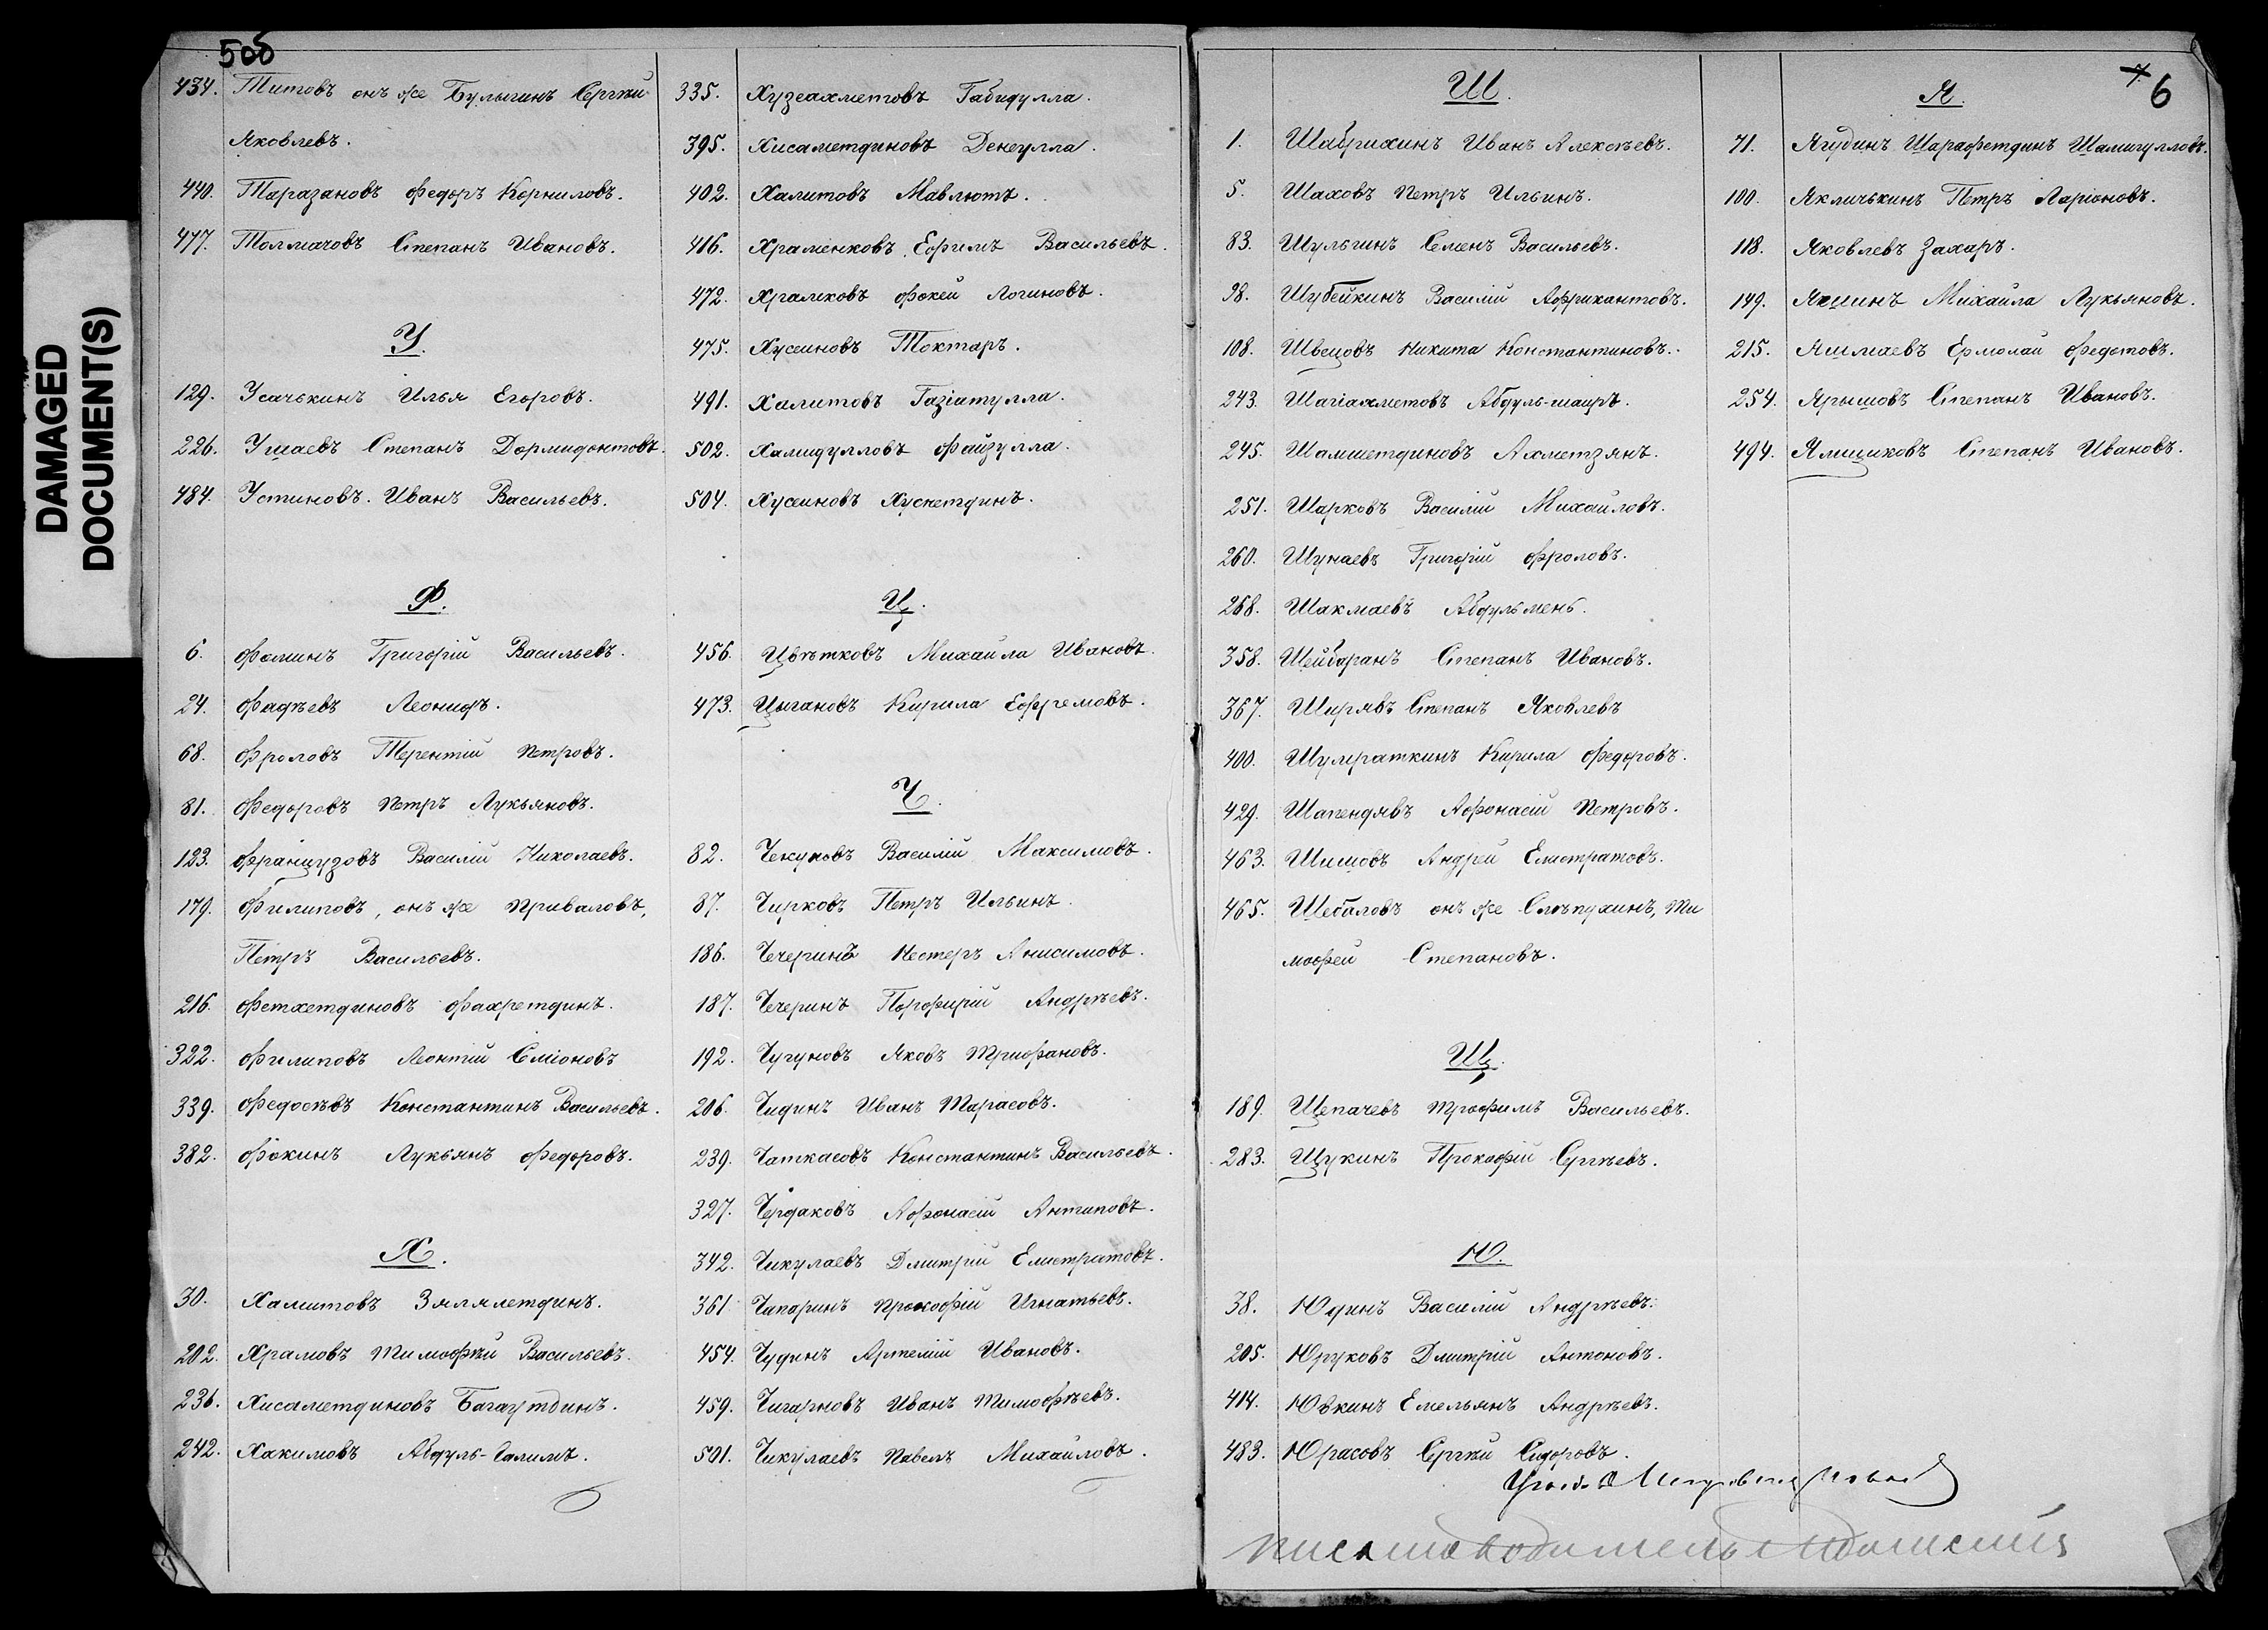 DAMAGED
DOCUMENT(S)
5об
434. Титовъ онъ же Булыгинъ Сергѣй
Яковлевъ.
440. Таразановъ Федоръ Корниловъ.
477. Толмачовъ Степанъ Ивановъ.
У.
129. Усачькинъ Илья Егоровъ.
226. Ушаевъ Степанъ Дормидонтовъ.
484. Устиновъ Иванъ Васильевъ.
Ф.
6. Фоминъ Григорій Васильевъ.
24. Фадѣевъ Леонидъ.
68. Фроловъ Терентій Петровъ.
81. Федоровъ Петръ Лукьяновъ.
123. Французовъ Василій Николаевъ.
179. Филиповъ, онъ же Приваловъ,
Петръ Васильевъ.
216. Фетхетдиновъ Фахретдинъ.
322. Филиповъ Леонтій Сміоновъ
339. Федосѣевъ Константинъ Васильевъ.
382. Фокинъ Лукьянъ Федоровъ.
Х.
30. Хамитовъ Зялялетдинъ.
202. Храмовъ Тимофѣй Васильевъ.
236. Хисаметдиновъ Багаутдинъ.
242. Хакимовъ Абдуль-Галимъ.
335. Хузеахметовъ Габидулла.
395. Хисаметдиновъ Денеулла.
402. Халитовъ Мавлютъ.
416. Храменковъ Ефимъ Васильевъ.
472. Храмковъ Фокей Логиновъ.
475. Хусеиновъ Токтаръ.
491. Халитовъ Газіатулла.
502. Хамидулловъ Файзулла.
504. Хусеиновъ Хуснетдинъ.
Ц.
456. Цвѣтковъ Михаила Ивановъ.
473. Цыгановъ Кирила Ефремовъ.
Ч.
82. Чекуновъ Василій Максимовъ.
87. Чирковъ Петръ Ильинъ.
186. Чечеринъ Нестеръ Анисимовъ.
187. Чечеринъ Порфирій Андрѣевъ.
192. Чугуновъ Яковъ Трифановъ.
206. Чидинъ Иванъ Тарасовъ.
239. Чаткасовъ Константинъ Васильевъ.
327. Чердаковъ Афонасій Антиповъ.
342. Чикулаевъ Дмитрій Елистратовъ.
361. Чапаринъ Прокофій Игнатьевъ.
454. Чудинъ Артемій Ивановъ.
459. Чигарновъ Иванъ Тимофѣевъ.
501. Чикулаевъ Павелъ Михайловъ.
Ш.
1. Шабрихинъ Иванъ Алексѣевъ.
5. Шаховъ Петръ Ильинъ.
83. Шульгинъ Семенъ Васильевъ.
98. Шубейкинъ Василій Африкантовъ.
108. Швецовъ Никита Константиновъ.
243. Шагіахметовъ Абдуль-шаиръ.
245. Шамшетдиновъ Ахметзянъ.
251. Шарковъ Василій Михайловъ.
260. Шунаевъ Григорій Фроловъ.
268. Шакмаевъ Абдульменъ.
358. Шейдаранъ Степанъ Ивановъ.
367. Ширявъ Степанъ Яковлевъ
400. Шумраткинъ Кирила Федоровъ.
429. Шапендявъ Афонасій Петровъ.
463. Шишовъ Андрей Елистратовъ.
465. Шебаловъ онъ же Слѣпухинъ, Ти
мофей Степановъ.
Щ.
189. Щепачевъ Трофимъ Васильевъ.
283. Щукинъ Прокофій Сергѣевъ.
Ю.
38. Юдинъ Василій Андрѣевъ.
205. Юруковъ Дмитрій Антоновъ.
414. Ювкинъ Емельянъ Андрѣевъ.
483. Юрасовъ Сергѣй Сидоровъ.
6
Я.
71. Ягудинъ Шарафетдинъ Шамигулловъ.
100. Якличькинъ Петръ Ларіоновъ.
118. Яковлевъ Захаръ.
149. Яшинъ Михайла Лукьяновъ.
215. Яшмаевъ Ермолай Федотовъ.
254. Ярышовъ Степанъ Ивановъ.
494. Ямщиковъ Степанъ Ивановъ.